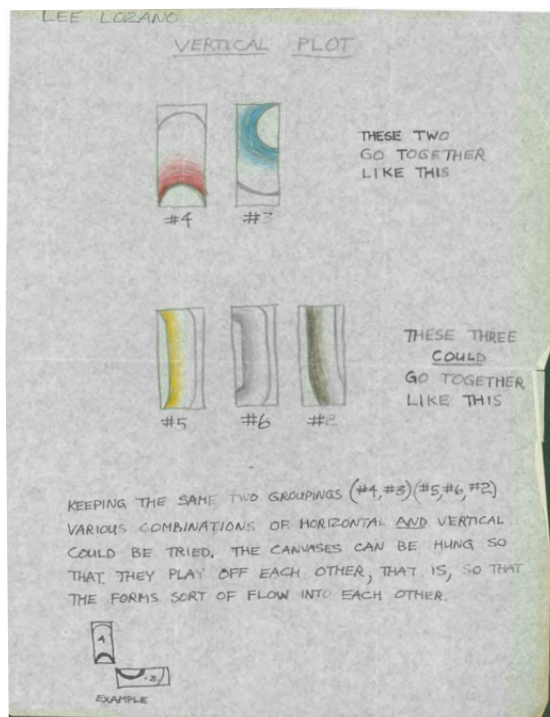 LEE LOZANO
VERTICAL PLOT
THESE TWO
GO TOGETHER
LIKE THIS
#4 #3
THESE THREE
COULD
GO TOGETHER
LIKE THIS
#5 #6 #2
KEEPING THE SAME TWO GROUPINGS (#4, #3) (#5, #6, #2)
VARIOUS COMBINATIONS OF HORIZONTAL AND VERTICAL
COULD BE TRIED. THE CANVASES CAN BE HUNG SO
THAT THEY PLAY OFF EACH OTHER, THAT IS, SO THAT
THE FORMS SORT OF FLOW INTO EACH OTHER.
4
EXAMPLE